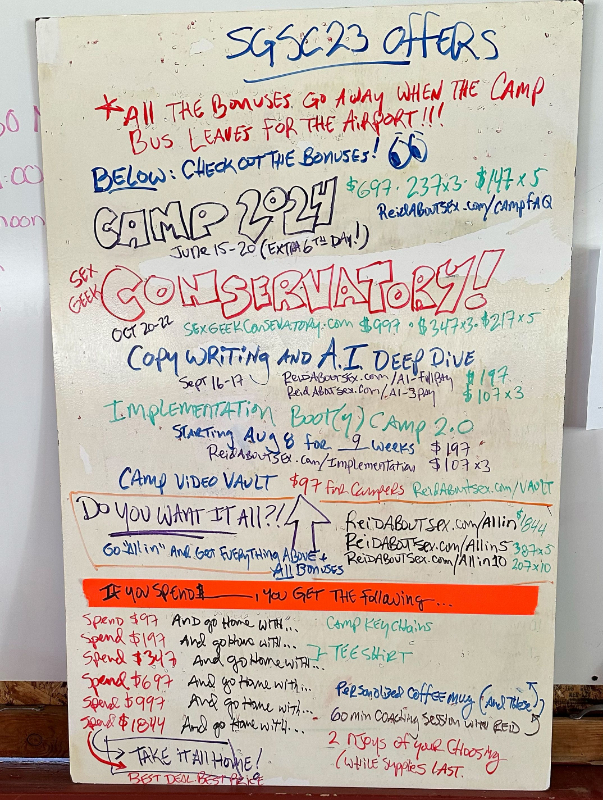 SGSC23 OFFERS
*All THE BONUSES GO AWAY WHEN THE CAMP
BUS LEAVES FOR THE AIRPORT!!!
BELOW: CHECK OUT THE BONUSES!
CAMP 2024 $697 · 237x3 · $147x5
ReidAboutSex.com/CAMPFAQ
JUNE 15-20 (EXTRA 6TH DAY!)
SEX GEEK CONSERVATORY!
OCT 20-22 SEXGEEKCONSERVATORY.COM $997 · $347x3 · $217x5
COPY WRITING AND A.I. DEEP DIVE
Sept 16-17 ReidAboutSex.com/AI-FullPay $197
ReidAboutSex.com/AI-3Pay $107x3
IMPLEMENTATION BOOT(Y) CAMP 2.0
STARTING AUG 8 FOR 9 WEEKS $197
ReidAboutSex.com/Implementation $107x3
CAMP VIDEO VAULT $97 FOR CAMPERS ReidAboutSex.com/VAULT
DO YOU WANT IT All?!
GO "All in" AND GET EVERYTHING ABOVE +
All BONUSES
ReidAboutSex.com/Allin $1844
ReidAboutSex.com/Allin5 387x5
ReidAboutSex.com/Allin10 207x10
IF YOU SPEND $____, YOU GET THE Following...
Spend $97 And go Home with... CAMP KEYCHAINS
Spend $197 And go Home with...
Spend $347 And go Home with... TEE SHIRT
Spend $697 And go Home with... Personalized Coffee Mug (And These)
Spend $997 And go Home with... 60 min Coaching Session with REID
Spend $1844 And go Home with... 2 NJOYS OF YOUR CHOOSING
(WHILE SUPPLIES LAST.
TAKE IT All HOME!
BEST DEAL. BEST PRICE